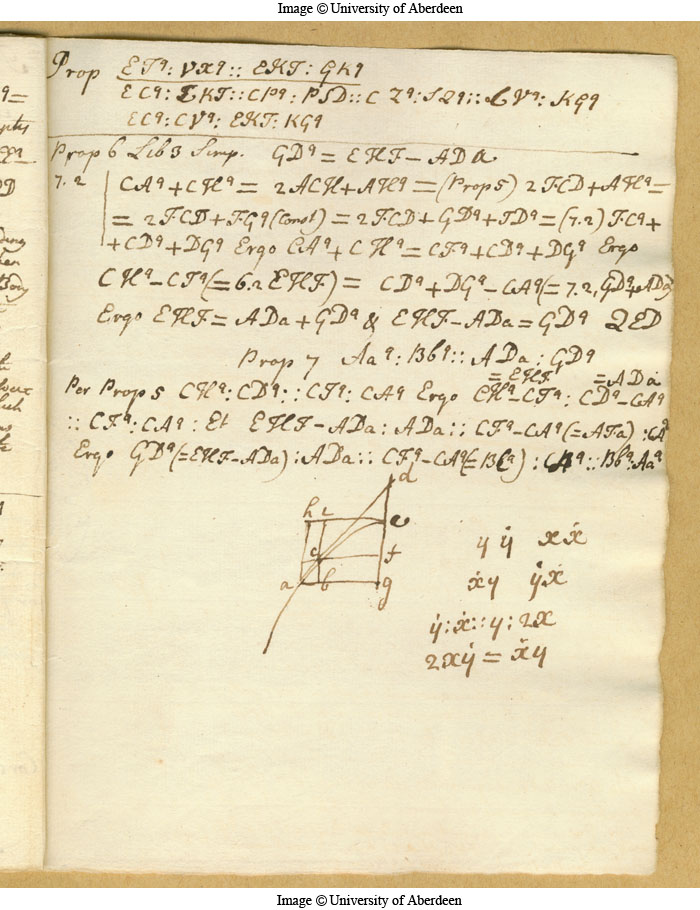 Image © University of Aberdeen
Prop ETq: VXq:: EKT: GKq
ECq: EKT:: CPq: PSD:: C Zq: SQq:: CVq: KGq
ECq: CVq: EKT: KGq
Prop 6 Lib 3 Simp. GDq = EHF - ADa
7.2 CAq + CHq = 2ACH + AHq = (Prop 5) 2FCD + AHq =
= 2FCD + FGq (Const) = 2FCD + GDq + FDq = (7.2) FCq +
+ CDq + DGq Ergo CAq + CHq = CFq + CDq + DGq Ergo
CHq - CFq (= 6.2 EHF) = CDq + DGq - CAq (= 7.2, GDq + ADa)
Ergo EHF = ADa + GDq & EHF - ADa = GDq QED
Prop 7 Aaq: Bbq:: ADa: GDq
= EHF = ADa
Per Prop 5 CHq: CDq:: CFq: CAq Ergo CHq - CFq: CDq - CAq
:: CFq: CAq: Et EHF - ADa: ADa:: CFq - CAq (= AFa): CAq
Ergo GDq (= EHF - ADa): ADa:: CFq - CAq (= BCq): CAq:: Bbq: Aaq
d
h i e
c f
a b g
y ẏ x ẋ
ẋy ẏẋ
ẏ: ẋ:: y: 2x
2xẏ = ẋy
Image © University of Aberdeen